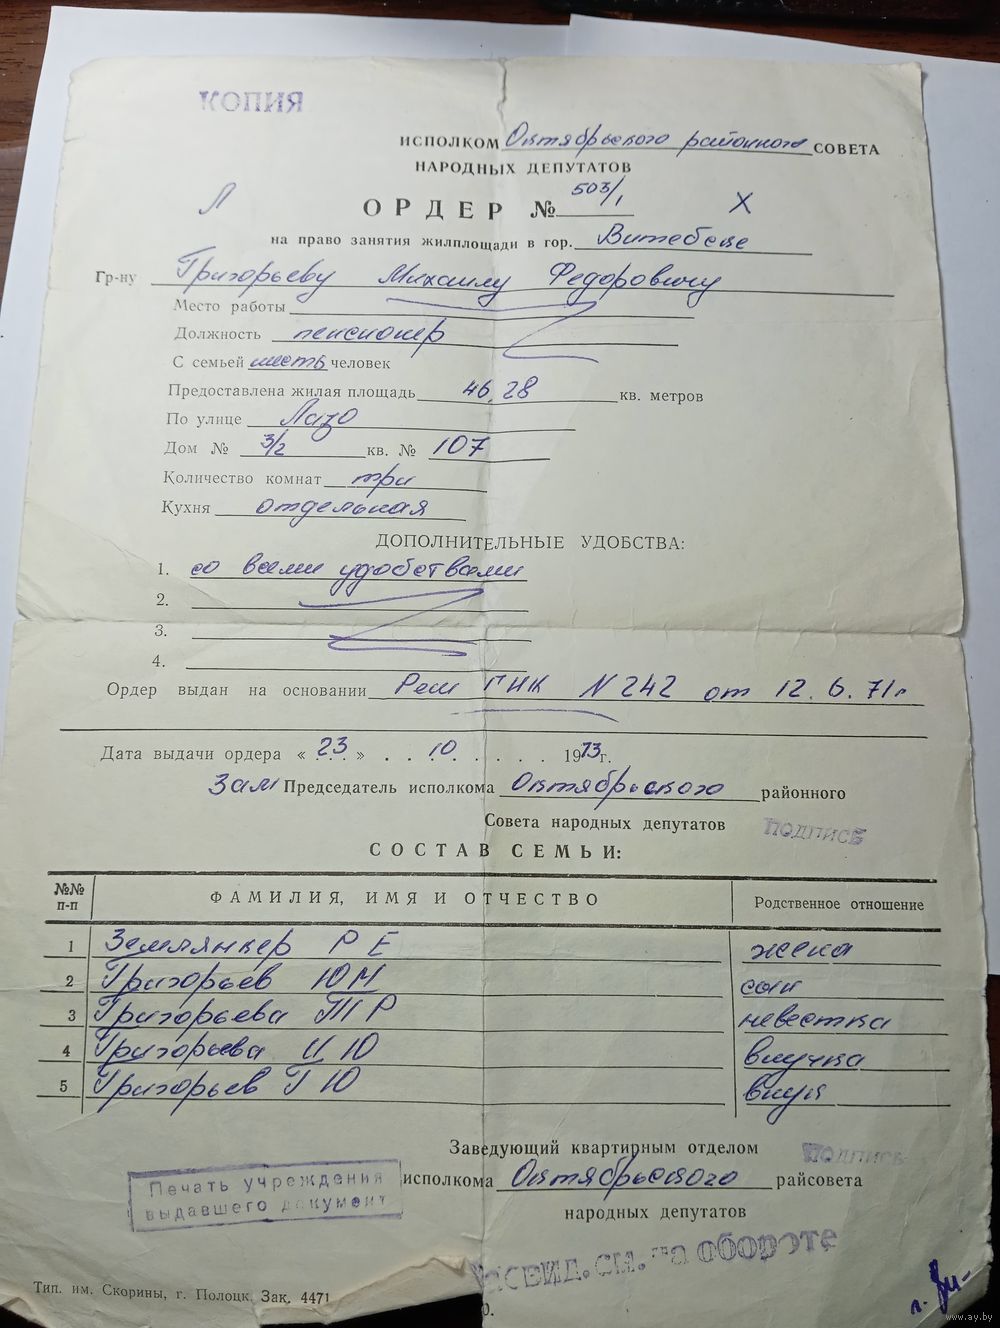 КОПИЯ
ИСПОЛКОМ Октябрьского районного СОВЕТА
НАРОДНЫХ ДЕПУТАТОВ
Л ОРДЕР № 503/1 Х
на право занятия жилплощади в гор. Витебске
Гр-ну Григорьеву Михаилу Федоровичу
Место работы
Должность пенсионер
С семьей шесть человек
Предоставлена жилая площадь 46,28 кв. метров
По улице Лазо
Дом № 3/2 кв. № 107
Количество комнат три
Кухня отдельная
ДОПОЛНИТЕЛЬНЫЕ УДОБСТВА:
1. со всеми удобствами
2.
3.
4.
Ордер выдан на основании Реш ГИК N 242 от 12.6.71г
Дата выдачи ордера « 23 » 10 1973г.
Зам Председатель исполкома Октябрьского районного
Совета народных депутатов ПОДПИСЬ
СОСТАВ СЕМЬИ:
№№ п-п ФАМИЛИЯ, ИМЯ И ОТЧЕСТВО Родственное отношение
1 Землянкер Р Е жена
2 Григорьев Ю М сын
3 Григорьева Т Р невестка
4 Григорьева И Ю внучка
5 Григорьев Г Ю внук
Заведующий квартирным отделом ПОДПИСЬ
исполкома Октябрьского райсовета
народных депутатов
Печать учреждения
выдавшего документ
ЗАСВИД. СМ. на обороте
Тип. им. Скорины, г. Полоцк. Зак. 4471
www.ay.by